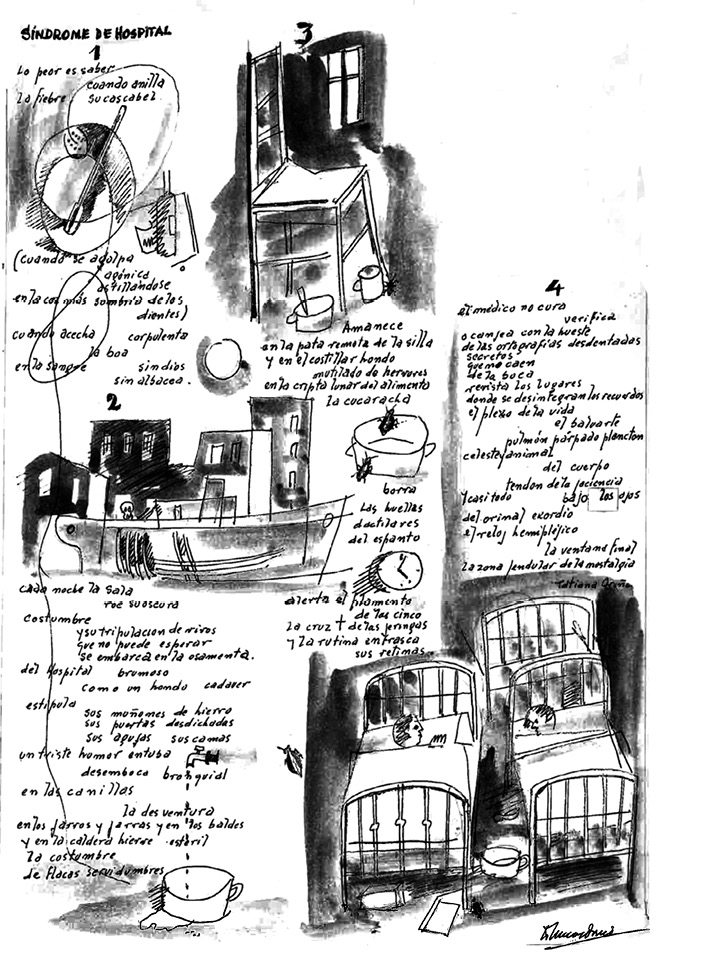 SÍNDROME DE HOSPITAL
1
Lo peor es saber
cuando anilla
la fiebre su cascabel
(cuando se agolpa
agónica
astillándose
en la cos más sombría de los
dientes)
cuando acecha corpulenta
la boa
en la sangre sin dios
sin albacea.
2
cada noche la sala
roe su oscura
costumbre
y su tripulación de vivos
que no puede esperar
se embarca en la osamenta.
del hospital brumoso
como un hondo cadaver
estipula
sus muñones de hierro
sus puertas desdichadas
sus agujas sus camas
un triste humor entuba
desemboca bronquial
en las canillas
la desventura
en los jarros y jarras y en los baldes
y en la caldera hierve estéril
la costumbre
de flacas servidumbres
3
Amanece
en la pata remota de la silla
y en el costillar hondo
mutilado de hervores
en la cripta lunar del alimento
la cucaracha
borra
las huellas
dactilares
del espanto
alerta el
de las cinco
la cruz † de las jeringas
y la rutina enfrasca
sus retinas.
4
el médico no cura
verifica
o canjea con la hueste
de las ortografías desdentadas
secretos
que no caen
de la boca
revista los lugares
donde se desintegran los recuerdos
el plexo de la vida
el baluarte
pulmón párpado plancton
celeste y animal
del cuerpo
tendón de la paciencia
y casi todo bajo los ojos
del orinal exordio
el reloj hemipléjico
la ventana final
la zona pendular de la nostalgia
Tatiana Oroño